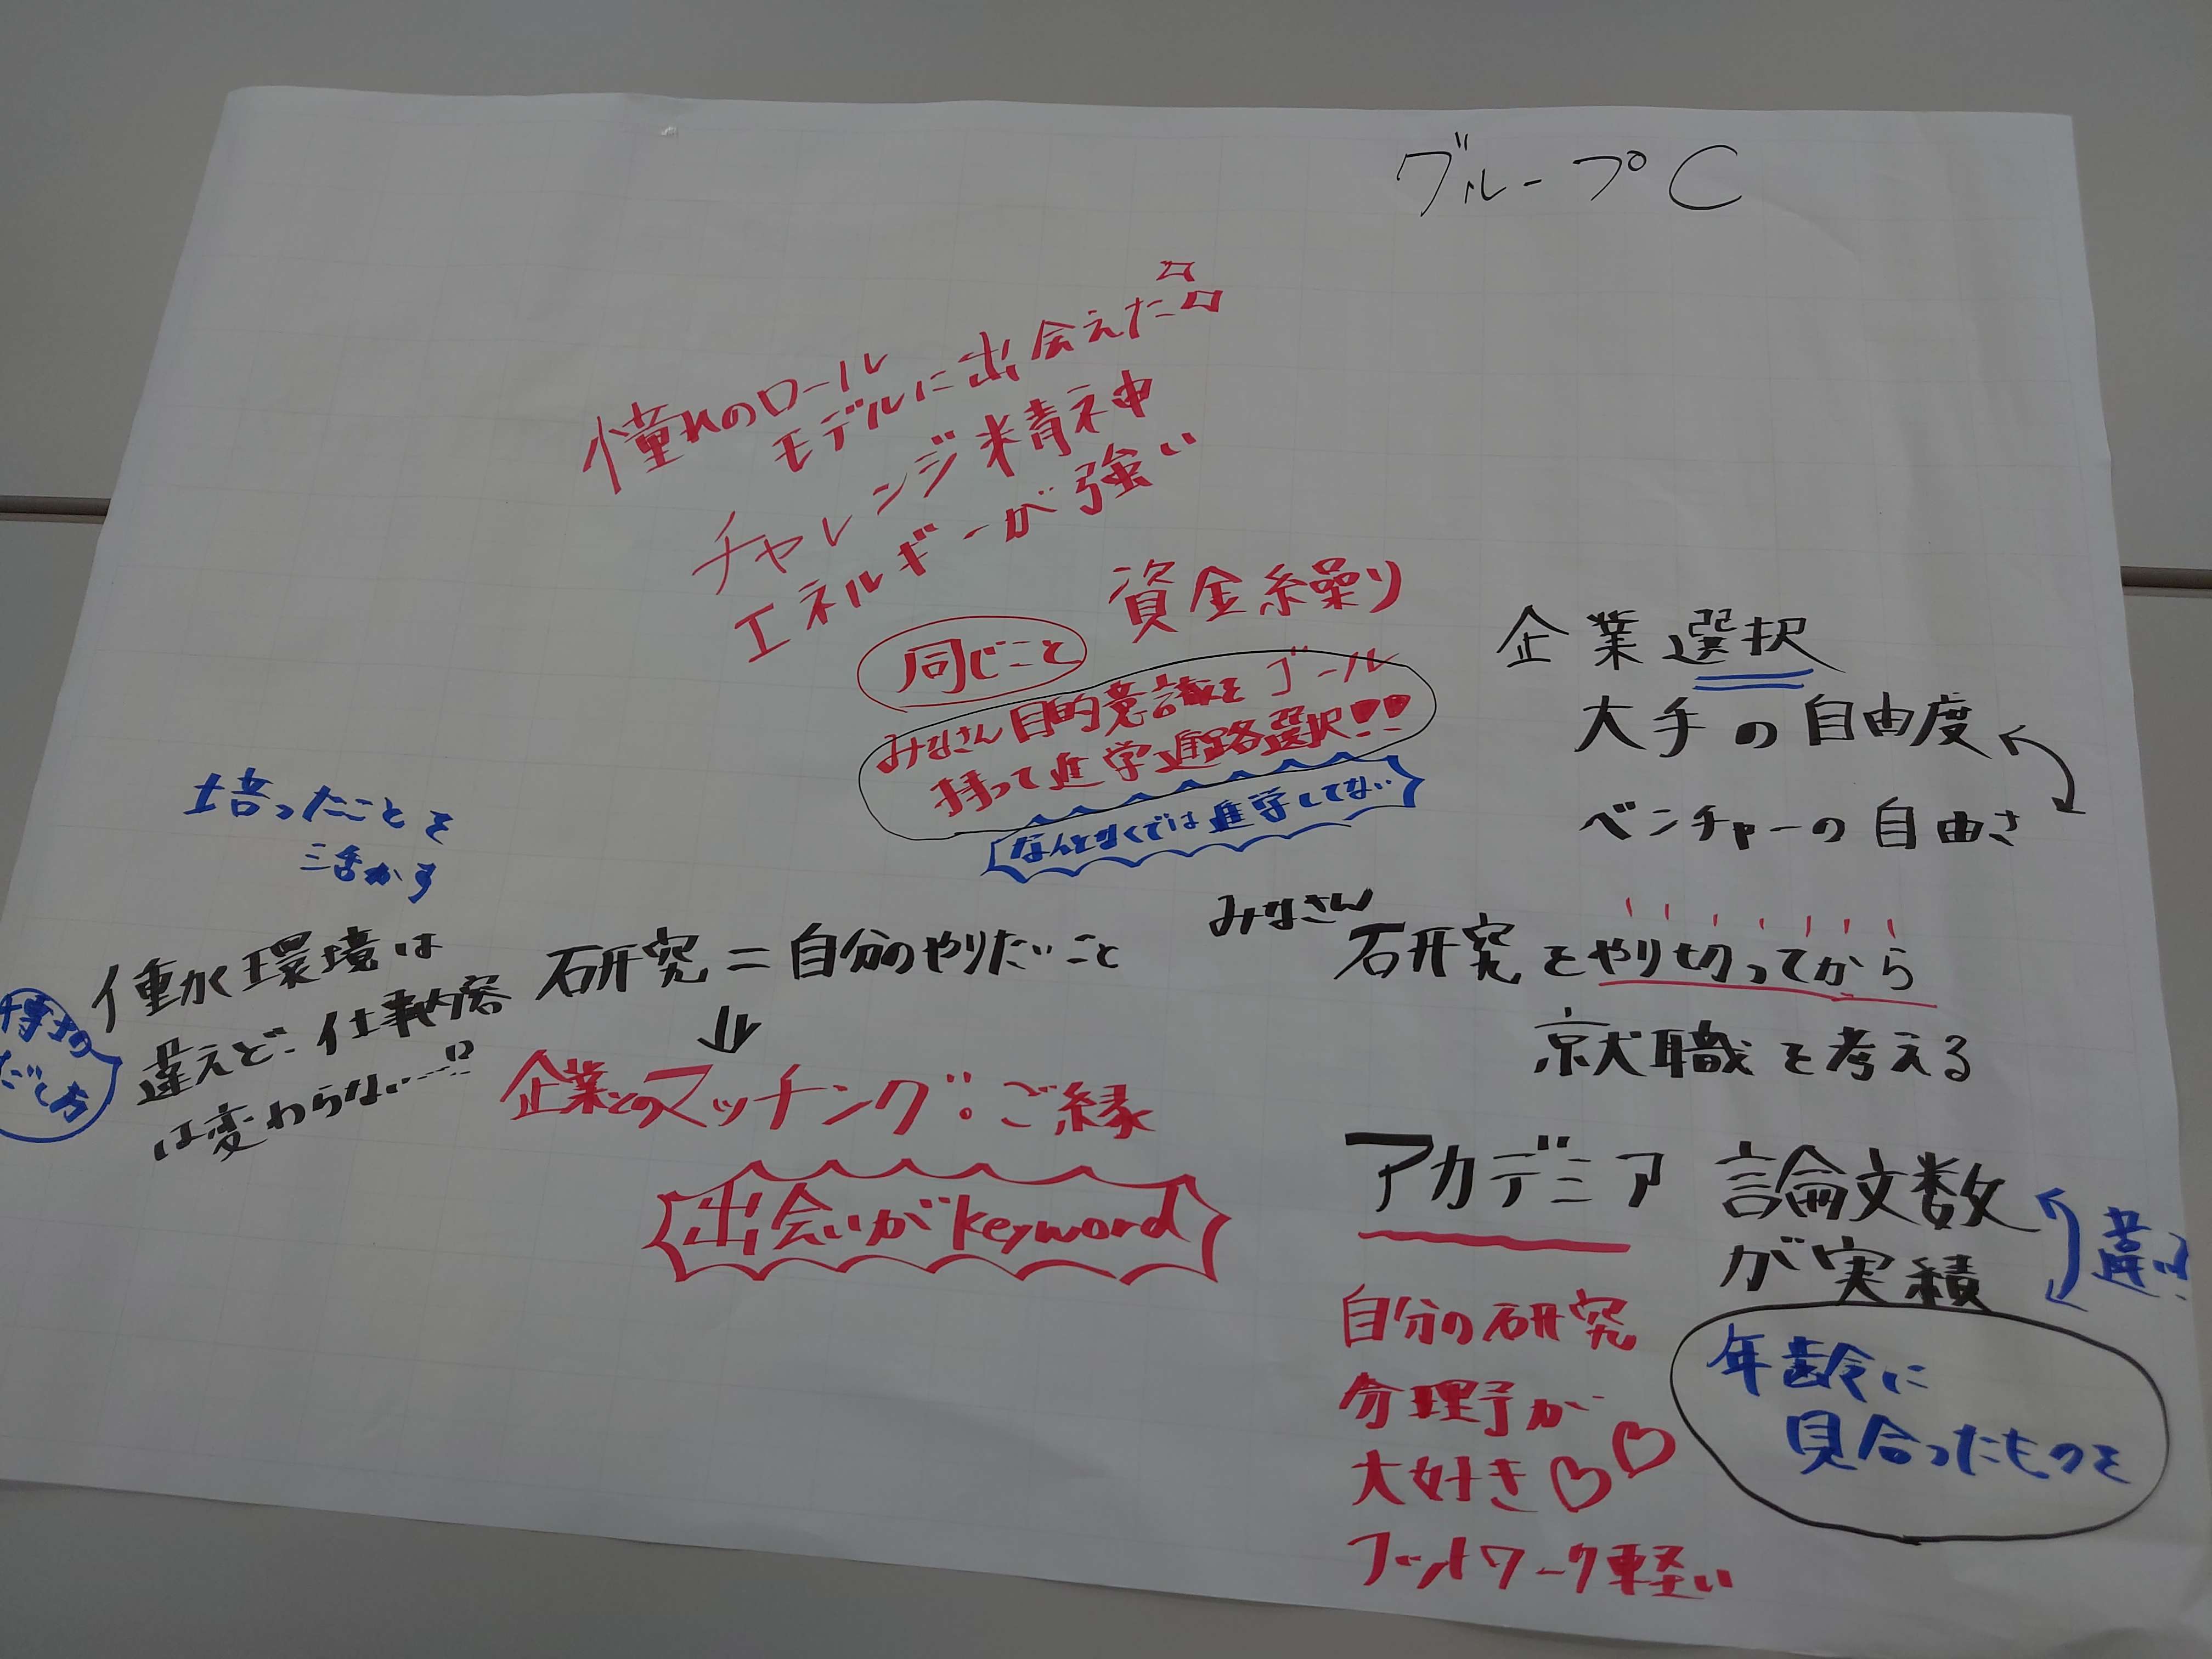 グループC
憧れのロール
モデルに出会えた
チャレンジ精神
エネルギーが強い
資金繰り
同じこと
みなさん目的意識を ゴール
持って進学進路選択!!
なんとなくでは進学してない
企業選択
大手の自由度
ベンチャーの自由さ
培ったことを
活かす
働く環境は
違えど、仕事内容
は変わらない…!?
博士の
だし方
研究=自分のやりたいこと
企業とのマッチング:ご縁
出会いがkeyword
みなさん
研究をやり切ってから
就職を考える
アカデミア
論文数
が実績
違い
自分の研究
分理予が
大好き♡♡
フットワーク軽い
年齢に
見合ったものを